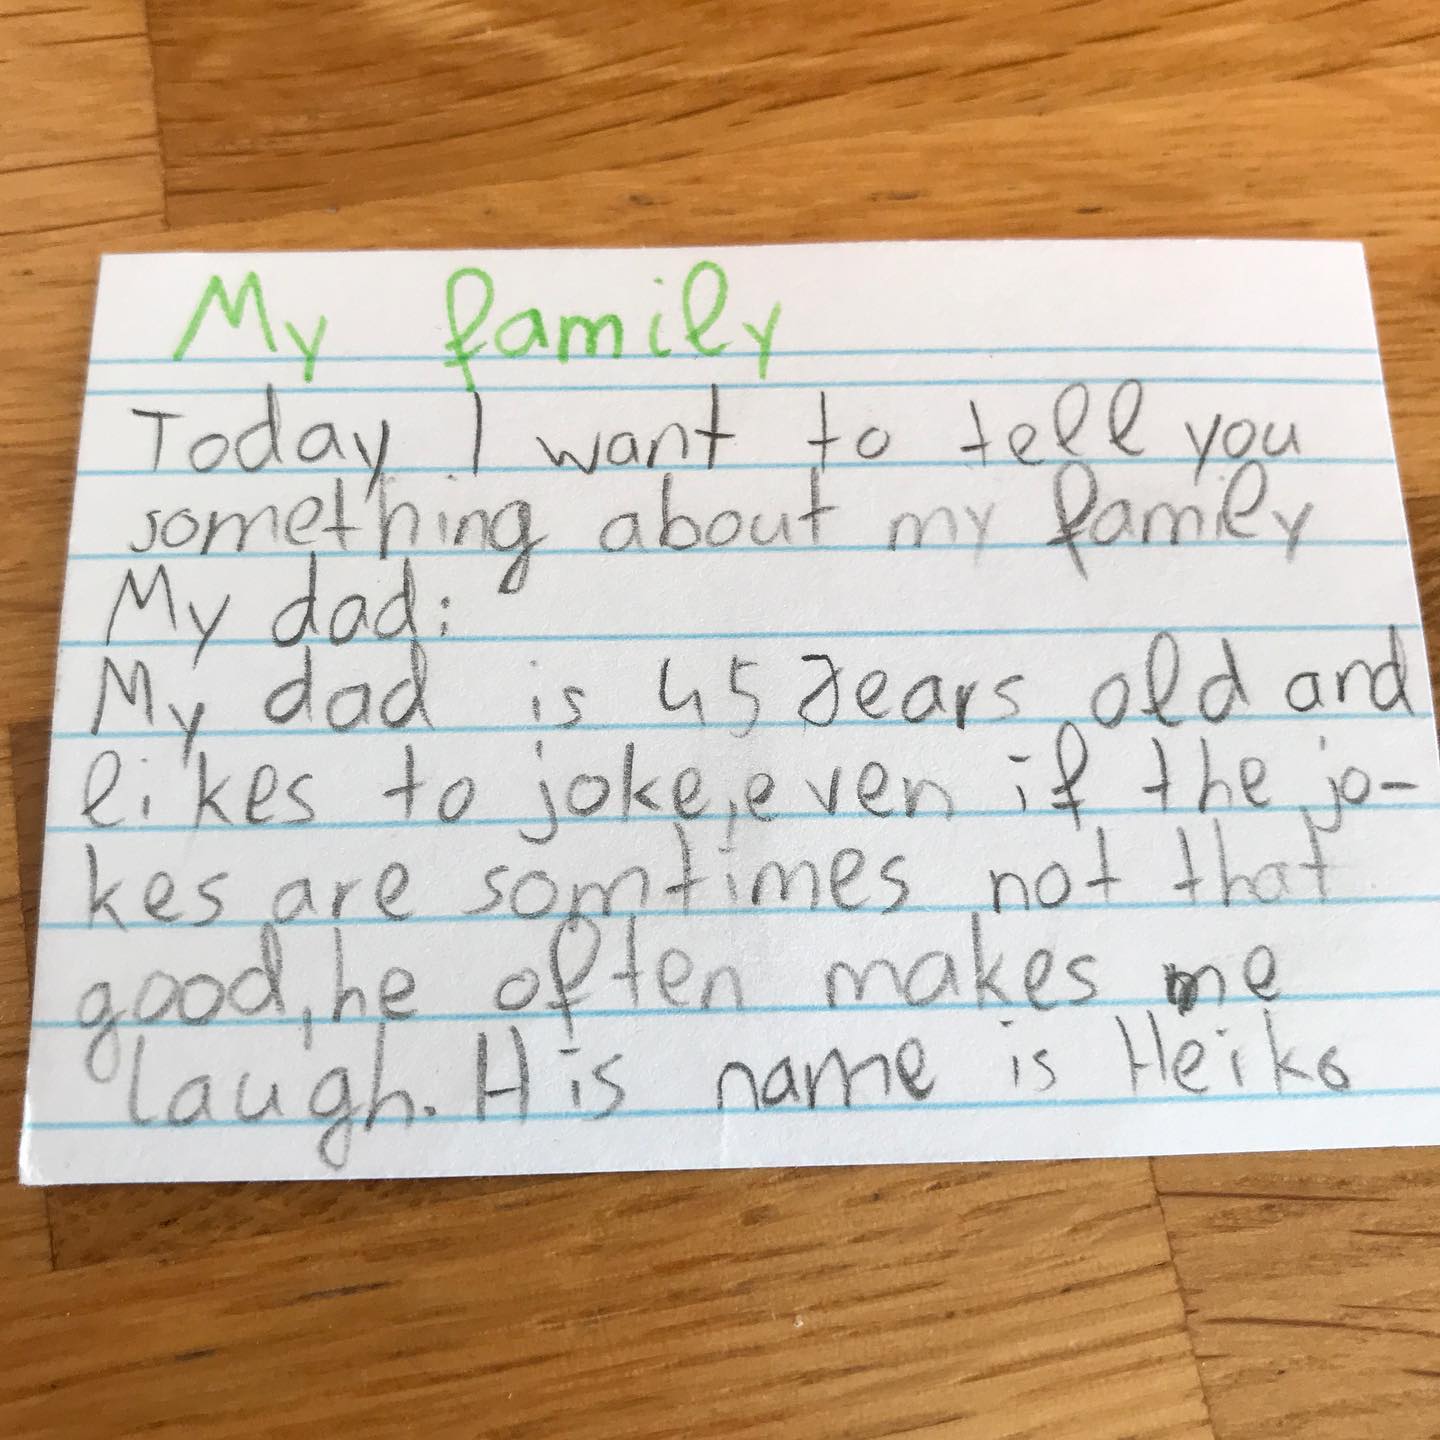 My family
Today I want to tell you
something about my family
My dad:
My dad is 45 Jears old and
likes to joke, even if the jo-
kes are somtimes not that
good, he often makes me
laugh. His name is Heiko